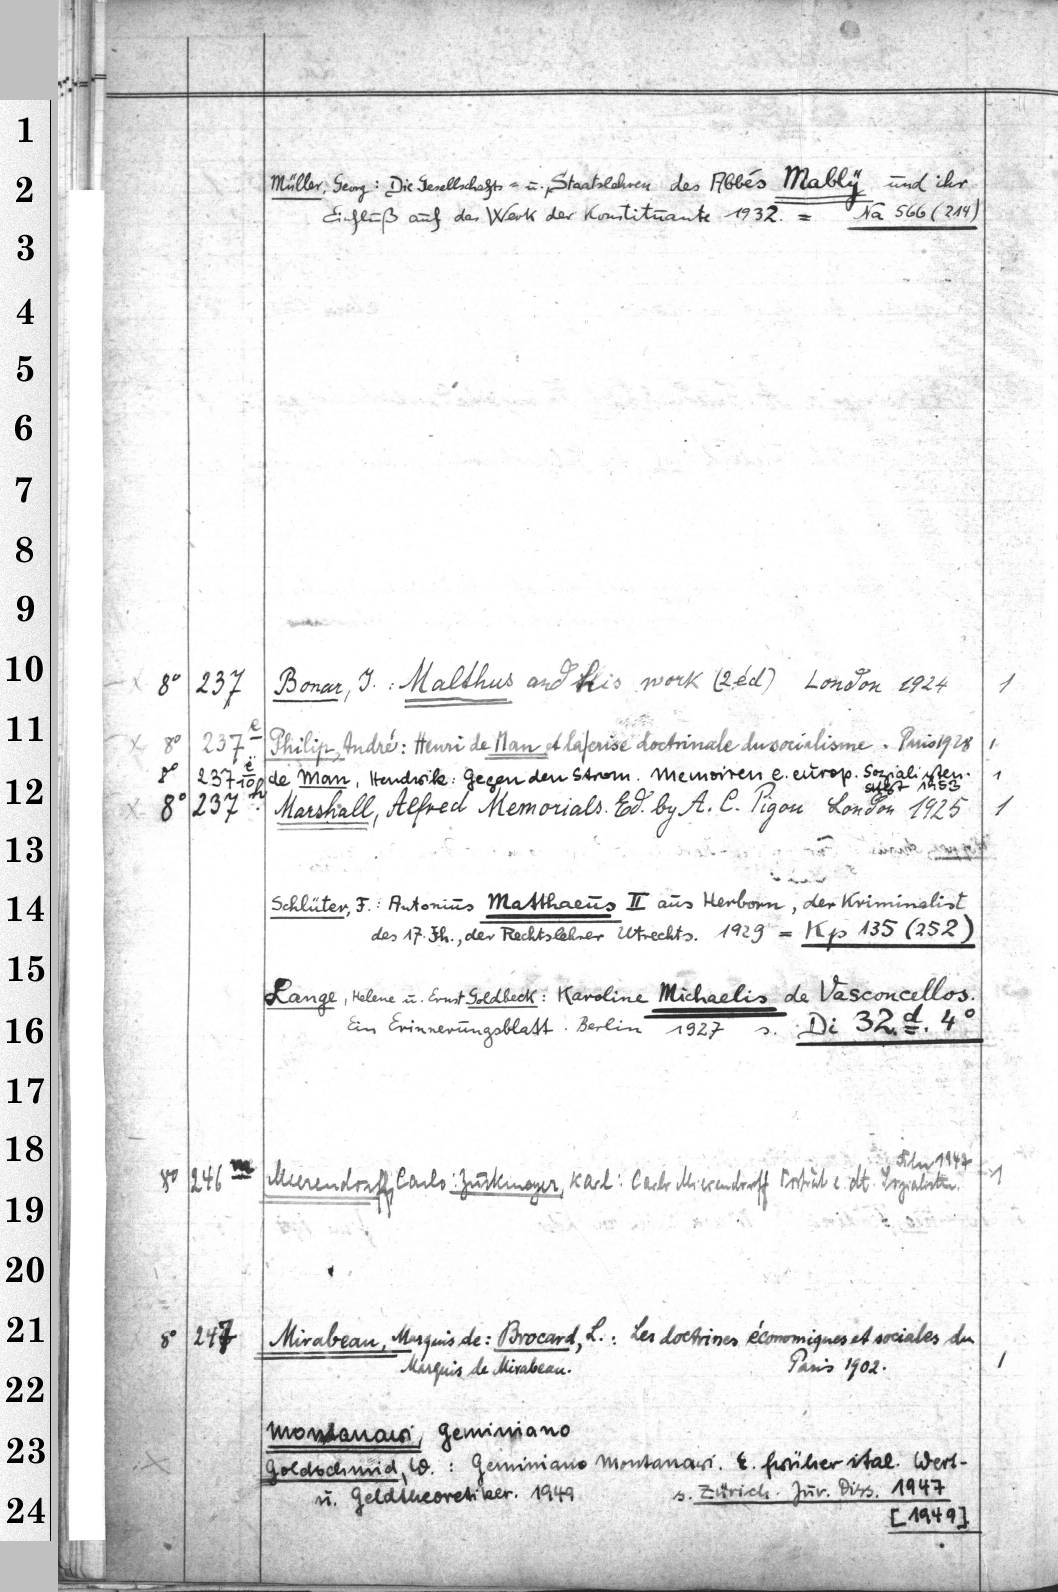 1
2
3
4
5
6
7
8
9
10
11
12
13
14
15
16
17
18
19
20
21
22
23
24
Müller, Georg: Die Gesellschafts- u. Staatslehren des Abbés Mably und ihr
Einfluß auf das Werk der Konstituante 1932. = Na 566 (214)
8° 237 Bonar, J.: Malthus and his work (2 éd) London 1924 1
8° 237e Philip, André: Henri de Man et la crise doctrinale du socialisme. Paris 1928 1.
8° 237 de Man, Hendrik: Gegen den Strom. Memoiren e. europ. Sozialisten. 1
Stgt 1953
8° 237h Marshall, Alfred Memorials. Ed. by A. C. Pigou London 1925 1
Schlüter, F.: Antonius Matthaeus II aus Herborn, der Kriminalist
des 17. Jh., der Rechtslehrer Utrechts. 1929 = Kp 135 (252)
Lange, Helene u. Ernst Goldbeck: Karoline Michaelis de Vasconcellos.
Ein Erinnerungsblatt. Berlin 1927 s. Di 32.d. 4°
1947
8° 246m Mierendorff, Carlo: Zuckmayer, Karl: Carlo Mierendorff Porträt e. dt. Sozialisten. 1
8° 247 Mirabeau, Marquis de: Brocard, L.: Les doctrines économiques et sociales du
Marquis de Mirabeau. Paris 1902. 1
Montanari, Geminiano
Goldschmid, W.: Geminiano Montanari. E. früher ital. Wert-
u. Geldtheoretiker. 1949 s. Zürich. Jur. Diss. 1947
[1949]